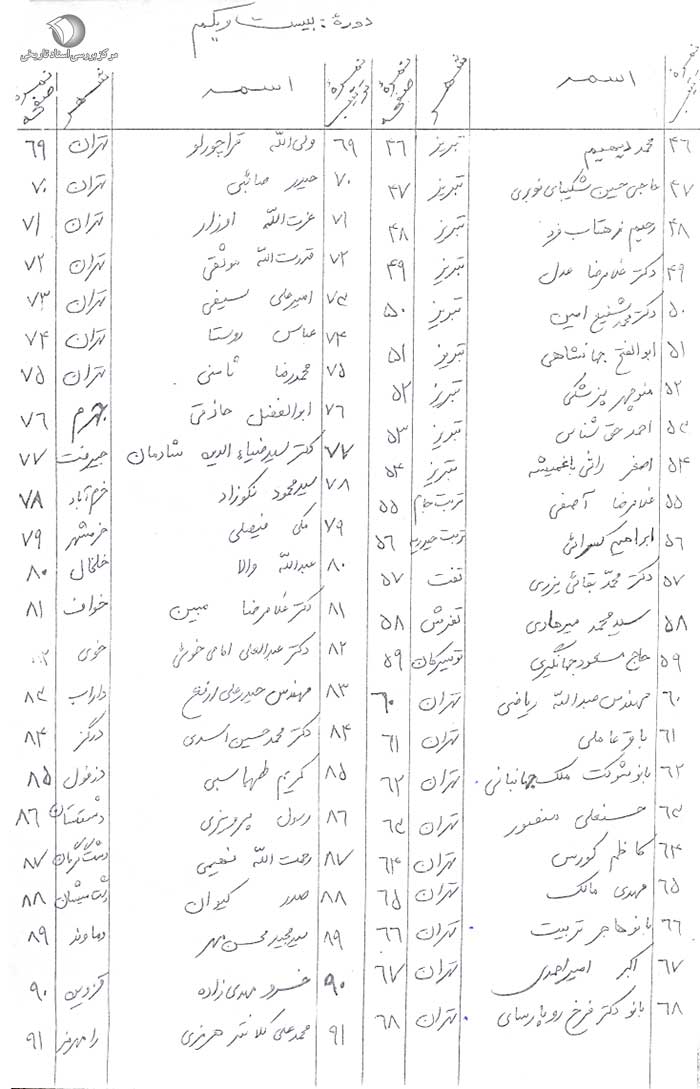 مرکز بررسی اسناد تاریخی
دورهٔ: بیست و یکم
نمره ترتیب اسم شهر نمره صفحه
۴۶ محمد دیهیم تبریز ۴۶
۴۷ حاجی حسین شکیبای نوبری تبریز ۴۷
۴۸ رحیم زهتاب فرد تبریز ۴۸
۴۹ دکتر غلامرضا عدل تبریز ۴۹
۵۰ دکتر محمد شفیع امین تبریز ۵۰
۵۱ ابوالفتح جهانشاهی تبریز ۵۱
۵۲ منوچهر پزشکی تبریز ۵۲
۵۳ احمد حق شناس تبریز ۵۳
۵۴ اصغر راثی باغمیشه تبریز ۵۴
۵۵ غلامرضا آصفی تربت جام ۵۵
۵۶ ابراهیم کسرائی تربت حیدریه ۵۶
۵۷ دکتر محمد بقائی یزدی تفت ۵۷
۵۸ سید محمد میرهادی تفرش ۵۸
۵۹ حاج مسعود جهانگیری تویسرکان ۵۹
۶۰ مهندس عبدالله ریاضی تهران ۶۰
۶۱ باقر عاملی تهران ۶۱
۶۲ بانو شوکت ملک جهانبانی تهران ۶۲
۶۳ حسنعلی منصور تهران ۶۳
۶۴ کاظم کورس تهران ۶۴
۶۵ مهدی مالک تهران ۶۵
۶۶ بانو هاجر تربیت تهران ۶۶
۶۷ اکبر امیراحمدی تهران ۶۷
۶۸ بانو دکتر فرخ رو پارسای تهران ۶۸
نمره ترتیب اسم شهر نمره صفحه
۶۹ ولی الله قراچورلو تهران ۶۹
۷۰ حیدر صائبی تهران ۷۰
۷۱ عزت الله اوزار تهران ۷۱
۷۲ قدرت الله موثقی تهران ۷۲
۷۳ امیرعلی سیفی تهران ۷۳
۷۴ عباس روستا تهران ۷۴
۷۵ محمدرضا ثامنی تهران ۷۵
۷۶ ابوالفضل حاذقی جهرم ۷۶
۷۷ دکتر سید ضیاء الدین شادمان جیرفت ۷۷
۷۸ سید محمود نکوزاد خرم آباد ۷۸
۷۹ مکی فیصلی خرمشهر ۷۹
۸۰ عبدالله والا خلخال ۸۰
۸۱ دکتر غلامرضا مبین خواف ۸۱
۸۲ دکتر عبدالعلی امامی خوئی خوی
۸۳ مهندس حیدرعلی ارفع داراب ۸۳
۸۴ دکتر محمد حسین اسدی درگز ۸۴
۸۵ کریم طهماسبی دزفول ۸۵
۸۶ رسول پرویزی دشتستان ۸۶
۸۷ رحمت الله نعیمی دشت گرگان ۸۷
۸۸ صدر کیوان دشت میشان ۸۸
۸۹ سید مجید محسن مهر دماوند ۸۹
۹۰ خسرو مهدی زاده ۹۰
۹۱ محمدعلی کلانتر هرمزی رامهرمز ۹۱